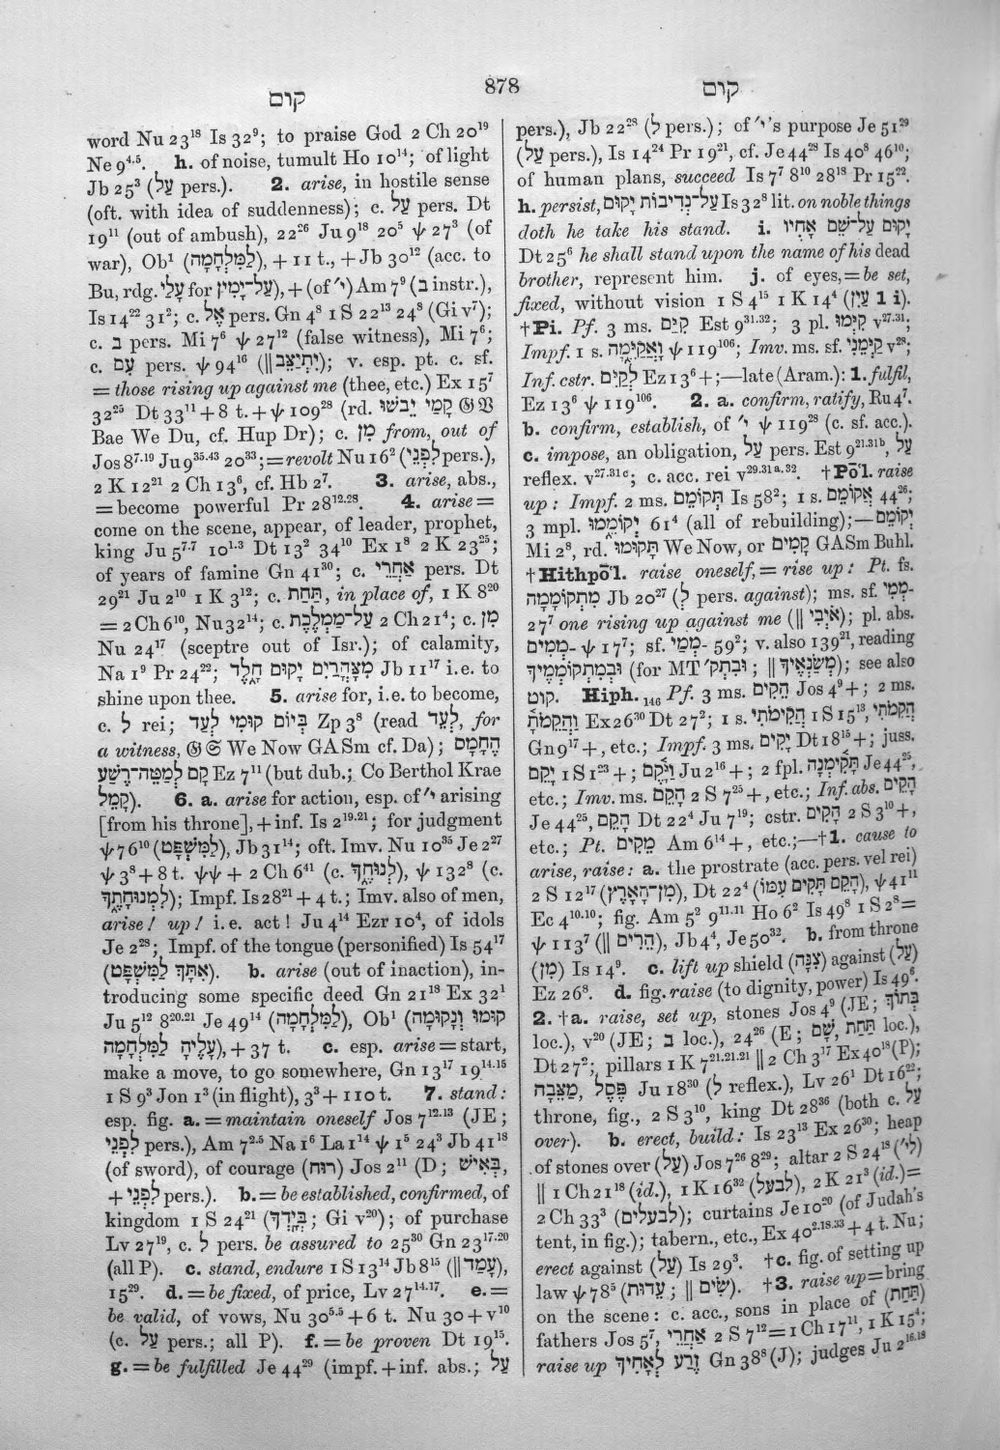 קום
878
קום
word Nu 23¹⁸ Is 32⁹; to praise God 2 Ch 20¹⁹
Ne 9⁴·⁵. h. of noise, tumult Ho 10¹⁴; of light
Jb 25³ (עַל pers.). 2. arise, in hostile sense
(oft. with idea of suddenness); c. עַל pers. Dt
19¹¹ (out of ambush), 22²⁶ Ju 9¹⁸ 20⁵ ψ 27³ (of
war), Ob¹ (לַמִּלְחָמָה), + 11 t., + Jb 30¹² (acc. to
Bu, rdg. עָלַי for עַל־יָמִין), + (of י׳) Am 7⁹ (ב instr.),
Is 14²² 31²; c. אֶל pers. Gn 4⁸ 1 S 22¹³ 24⁸ (Gi v⁷);
c. ב pers. Mi 7⁶ ψ 27¹² (false witness), Mi 7⁶;
c. עִם pers. ψ 94¹⁶ (‖ יִתְיַצֵּב); v. esp. pt. c. sf.
= those rising up against me (thee, etc.) Ex 15⁷
32²⁵ Dt 33¹¹ + 8 t. + ψ 109²⁸ (rd. קָמַי יֵבשׁוּ 𝔊 𝔙
Bae We Du, cf. Hup Dr); c. מִן from, out of
Jos 8⁷·¹⁹ Ju 9³⁵·⁴³ 20³³; = revolt Nu 16² (לִפְנֵי pers.),
2 K 12²¹ 2 Ch 13⁶, cf. Hb 2⁷. 3. arise, abs.,
= become powerful Pr 28¹²·²⁸. 4. arise =
come on the scene, appear, of leader, prophet,
king Ju 5⁷·⁷ 10¹·³ Dt 13² 34¹⁰ Ex 1⁸ 2 K 23²⁵;
of years of famine Gn 41³⁰; c. אַחֲרֵי pers. Dt
29²¹ Ju 2¹⁰ 1 K 3¹²; c. תַּחַת, in place of, 1 K 8²⁰
= 2 Ch 6¹⁰, Nu 32¹⁴; c. עַל־מַמְלֶכֶת 2 Ch 21⁴; c. מִן
Nu 24¹⁷ (sceptre out of Isr.); of calamity,
Na 1⁹ Pr 24²²; מִצָּהֳרַיִם יָקוּם חָלֶד Jb 11¹⁷ i.e. to
shine upon thee. 5. arise for, i.e. to become,
c. ל rei; בְּיוֹם קוּמִי לְעַד Zp 3⁸ (read לְעֵד, for
a witness, 𝔊 𝔖 We Now GASm cf. Da); הֶחָמָס
קָם לְמַטֵּה־רֶשַׁע Ez 7¹¹ (but dub.; Co Berthol Krae
קָמֵל). 6. a. arise for action, esp. of י׳ arising
[from his throne], + inf. Is 2¹⁹·²¹; for judgment
ψ 76¹⁰ (לַמִּשְׁפָּט), Jb 31¹⁴; oft. Imv. Nu 10³⁵ Je 2²⁷
ψ 3⁸ + 8 t. ψψ + 2 Ch 6⁴¹ (c. לְנוּחֶךָ), ψ 132⁸ (c.
לִמְנוּחָתֶךָ); Impf. Is 28²¹ + 4 t.; Imv. also of men,
arise! up! i.e. act! Ju 4¹⁴ Ezr 10⁴, of idols
Je 2²⁸; Impf. of the tongue (personified) Is 54¹⁷
(אִתָּךְ לַמִּשְׁפָּט). b. arise (out of inaction), in-
troducing some specific deed Gn 21¹⁸ Ex 32¹
Ju 5¹² 8²⁰·²¹ Je 49¹⁴ (לַמִּלְחָמָה), Ob¹ (קוּמוּ וְנָקוּמָה
עָלֶיהָ לַמִּלְחָמָה), + 37 t. c. esp. arise = start,
make a move, to go somewhere, Gn 13¹⁷ 19¹⁴·¹⁵
1 S 9³ Jon 1³ (in flight), 3³ + 110 t. 7. stand:
esp. fig. a. = maintain oneself Jos 7¹²·¹³ (JE;
לִפְנֵי pers.), Am 7²·⁵ Na 1⁶ La 1¹⁴ ψ 1⁵ 24³ Jb 41¹⁸
(of sword), of courage (רוּחַ) Jos 2¹¹ (D; בְּאִישׁ,
+ לִפְנֵי pers.). b. = be established, confirmed, of
kingdom 1 S 24²¹ (בְּיָדְךָ; Gi v²⁰); of purchase
Lv 27¹⁹, c. ל pers. be assured to 25³⁰ Gn 23¹⁷·²⁰
(all P). c. stand, endure 1 S 13¹⁴ Jb 8¹⁵ (‖ עָמַד),
15²⁹. d. = be fixed, of price, Lv 27¹⁴·¹⁷. e. =
be valid, of vows, Nu 30⁵·⁵ + 6 t. Nu 30 + v¹⁰
(c. עַל pers.; all P). f. = be proven Dt 19¹⁵.
g. = be fulfilled Je 44²⁹ (impf. + inf. abs.; עַל
pers.), Jb 22²⁸ (ל pers.); of י׳'s purpose Je 51²⁹
(עַל pers.), Is 14²⁴ Pr 19²¹, cf. Je 44²⁸ Is 40⁸ 46¹⁰;
of human plans, succeed Is 7⁷ 8¹⁰ 28¹⁸ Pr 15²².
h. persist, עַל־נְדִיבוֹת יָקוּם Is 32⁸ lit. on noble things
doth he take his stand. i. יָקוּם עַל־שֵׁם אָחִיו
Dt 25⁶ he shall stand upon the name of his dead
brother, represent him. j. of eyes, = be set,
fixed, without vision 1 S 4¹⁵ 1 K 14⁴ (עַיִן 1 i).
†Pi. Pf. 3 ms. קִיַּם Est 9³¹·³²; 3 pl. קִיְּמוּ v²⁷·³¹;
Impf. 1 s. וָאֲקַיֵּמָה ψ 119¹⁰⁶; Imv. ms. sf. קַיְּמֵנִי v²⁸;
Inf. cstr. לְקַיֵּם Ez 13⁶ +;—late (Aram.): 1. fulfil,
Ez 13⁶ ψ 119¹⁰⁶. 2. a. confirm, ratify, Ru 4⁷.
b. confirm, establish, of י׳ ψ 119²⁸ (c. sf. acc.).
c. impose, an obligation, עַל pers. Est 9²¹·³¹ᵇ, עַל
reflex. v²⁷·³¹ᶜ; c. acc. rei v²⁹·³¹ᵃ·³². †Pō‘l. raise
up: Impf. 2 ms. תְּקוֹמֵם Is 58¹²; 1 s. אֲקוֹמֵם 44²⁶;
3 mpl. יְקוֹמֵמוּ 61⁴ (all of rebuilding);—יְקוֹמֵם
Mi 2⁸, rd. תָּקוּמוּ We Now, or קָמִים GASm Buhl.
†Hithpō‘l. raise oneself, = rise up: Pt. fs.
מִתְקוֹמָמָה Jb 20²⁷ (ל pers. against); ms. sf. ־מְמִי
27⁷ one rising up against me (‖ אֹיְבִי); pl. abs.
־מְמִים ψ 17⁷; sf. ־מְמַי 59²; v. also 139²¹, reading
וּבְמִתְקוֹמְמֶיךָ (for MT וּבִתְק׳; ‖ מְשַׂנְאֶיךָ); see also
קוט. Hiph.₁₄₆ Pf. 3 ms. הֵקִים Jos 4⁹ +; 2 ms.
וַהֲקֵמֹתָ Ex 26³⁰ Dt 27²; 1 s. הֲקִימֹתִי 1 S 15¹³, הֲקִמֹתִי
Gn 9¹⁷ +, etc.; Impf. 3 ms. יָקִים Dt 18¹⁵ +; juss.
יָקֵם 1 S 1²³ +; וַיָּקֶם Ju 2¹⁶ +; 2 fpl. תָּקִימְנָה Je 44²⁵,
etc.; Imv. ms. הָקֵם 2 S 7²⁵ +, etc.; Inf. abs. הָקִים
Je 44²⁵, הָקֵם Dt 22⁴ Ju 7¹⁹; cstr. הָקִים 2 S 3¹⁰ +,
etc.; Pt. מֵקִים Am 6¹⁴ +, etc.;—†1. cause to
arise, raise: a. the prostrate (acc. pers. vel rei)
2 S 12¹⁷ (מִן־הָאָרֶץ), Dt 22⁴ (הָקֵם תָּקִים עִמּוֹ), ψ 41¹¹
Ec 4¹⁰·¹⁰; fig. Am 5² 9¹¹·¹¹ Ho 6² Is 49⁸ 1 S 2⁸ =
ψ 113⁷ (‖ הֵרִים), Jb 4⁴, Je 50³². b. from throne
(מִן) Is 14⁹. c. lift up shield (צִנָּה) against (עַל)
Ez 26⁸. d. fig. raise (to dignity, power) Is 49⁶.
2. †a. raise, set up, stones Jos 4⁹ (JE; בְּתוֹךְ
loc.), v²⁰ (JE; ב loc.), 24²⁶ (E; שָׁם, תַּחַת loc.),
Dt 27²; pillars 1 K 7²¹·²¹·²¹ ‖ 2 Ch 3¹⁷ Ex 40¹⁸ (P);
פֶּסֶל, מַצֵּבָה Ju 18³⁰ (ל reflex.), Lv 26¹ Dt 16²²;
throne, fig., 2 S 3¹⁰, king Dt 28³⁶ (both c. עַל
over). b. erect, build: Is 23¹³ Ex 26³⁰; heap
of stones over (עַל) Jos 7²⁶ 8²⁹; altar 2 S 24¹⁸ (לי׳)
‖ 1 Ch 21¹⁸ (id.), 1 K 16³² (לבעל), 2 K 21³ (id.) =
2 Ch 33³ (לבעלים); curtains Je 10²⁰ (of Judah's
tent, in fig.); tabern., etc., Ex 40²·¹⁸·³³ + 4 t. Nu;
erect against (עַל) Is 29³. †c. fig. of setting up
law ψ 78⁵ (עֵדוּת; ‖ שִׂים). †3. raise up = bring
on the scene: c. acc., sons in place of (תַּחַת)
fathers Jos 5⁷, אַחֲרֵי 2 S 7¹² = 1 Ch 17¹¹, 1 K 15⁴;
raise up זֶרַע לְאָחִיךָ Gn 38⁸ (J); judges Ju 2¹⁶·¹⁸